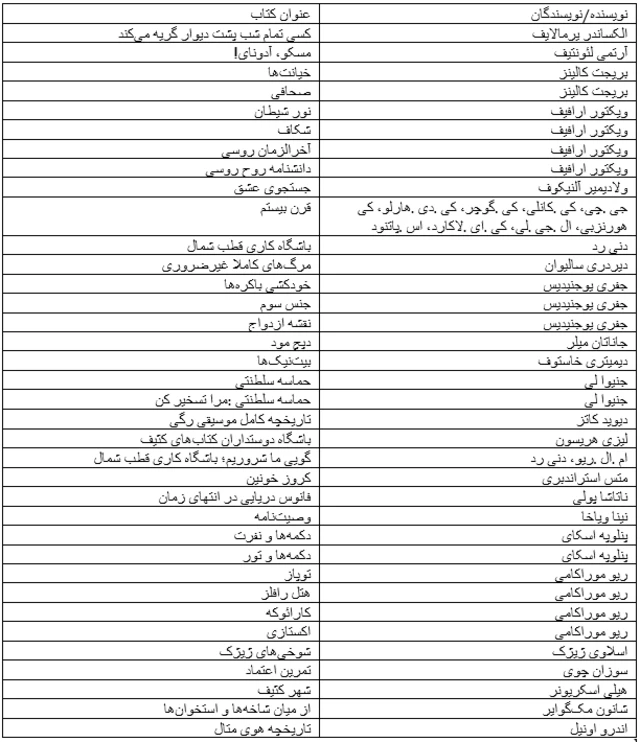 نویسنده/نویسندگان عنوان کتاب
الکساندر یرمالایف کسی تمام شب پشت دیوار گریه می‌کند
آرتمی لئونتیف مسکو، آدونای!
بریجت کالینز خیانت‌ها
بریجت کالینز صحافی
ویکتور ارافیف نور شیطان
ویکتور ارافیف شکاف
ویکتور ارافیف آخرالزمان روسی
ویکتور ارافیف دانشنامه روح روسی
ولادیمیر آلنیکوف جستجوی عشق
جی .چی، کی .کانلی، کی .گوچر، کی .دی .هارلو، کی قرن بیستم
هورنزبی، ال .جی .لی، کی .ای .لاکارد، اس .پاتنود
دنی رد باشگاه کاری قطب شمال
دیردری سالیوان مرگ‌های کاملا غیرضروری
جفری یوجنیدیس خودکشی باکره‌ها
جفری یوجنیدیس جنس سوم
جفری یوجنیدیس نقشه ازدواج
جاناتان میلر دپچ مود
دیمیتری خاستوف بیت‌نیک‌ها
جنیوا لی حماسه سلطنتی
جنیوا لی حماسه سلطنتی :مرا تسخیر کن
دیوید کاتز تاریخچه کامل موسیقی رگی
لیزی هریسون باشگاه دوستداران کتاب‌های کثیف
ام .ال .ریو، دنی رد گویی ما شروریم؛ باشگاه کاری قطب شمال
متس استراندبری کروز خونین
ناتاشا پولی فانوس دریایی در انتهای زمان
نینا ویاخا وصیت‌نامه
پنلوپه اسکای دکمه‌ها و نفرت
پنلوپه اسکای دکمه‌ها و تور
ریو موراکامی توپاز
ریو موراکامی هتل رافلز
ریو موراکامی کارائوکه
ریو موراکامی اکستازی
اسلاوی ژیژک شوخی‌های ژیژک
سوزان چوی تمرین اعتماد
هیلی اسکریونر شهر کثیف
شانون مک‌گوایر از میان شاخه‌ها و استخوان‌ها
اندرو اونیل تاریخچه هوی متال